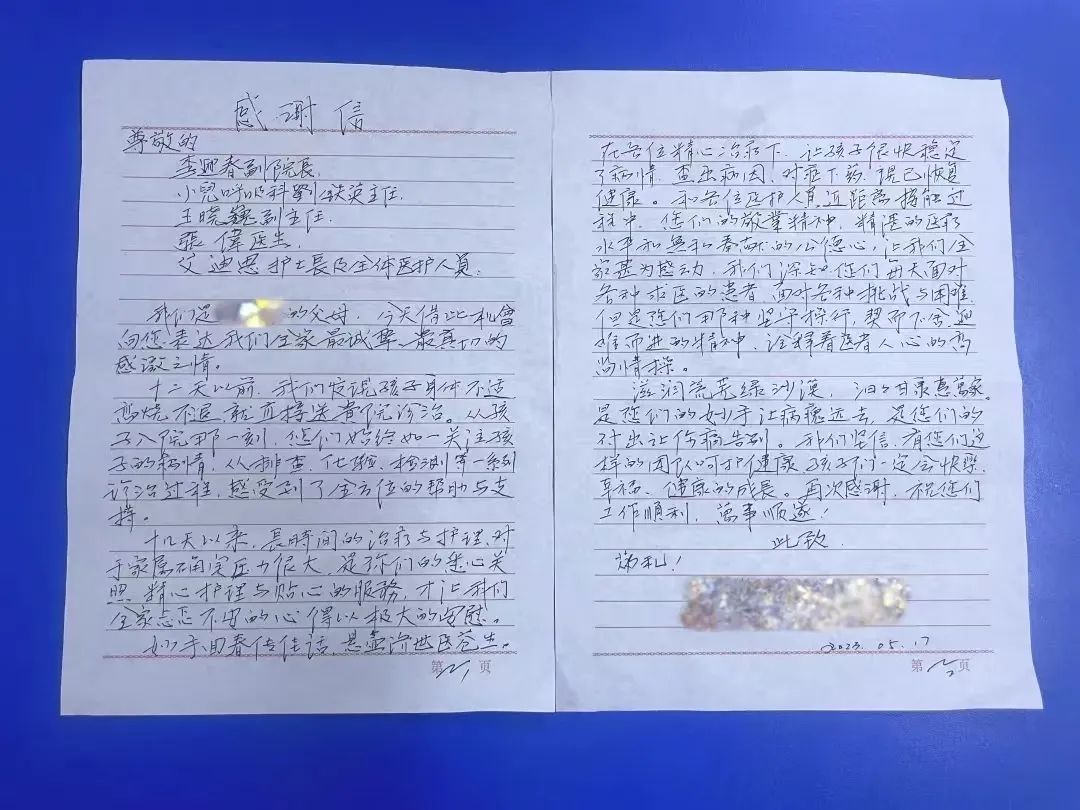 感谢信
尊敬的
李迎春副院長,
小兒呼吸科劉鉄英主任,
王曉艷副主任,
張偉医生,
艾迪思护士長及全体医护人員:
我们是 的父母, 今天借此机會
向您表达我们全家最诚挚、最真切的
感激之情。
十二天以前, 我们发现孩子身体不适
高烧不退就直接送貴院诊治。从孩
子入院那一刻, 您们始终如一关注孩
子的病情, 从排查、化验、检测等一系列
诊治过程, 感受到了全方位的帮助与支
持。
十几天以来, 長時间的治疗与护理, 对
于家属确实压力很大, 是你们的悉心关
照, 精心护理与贴心的服務, 才让我们
全家忐忑不安的心得以极大的安慰。
妙手回春传佳话, 悬壶济世医苍生。
第 1 页
在各位精心治疗下, 让孩子很快稳定
了病情, 查出病因, 对症下药, 现已恢复
健康。和各位医护人員近距离接触过
程中, 您们的敬業精神, 精湛的医疗
水平和無私奉献的公德心, 让我们全
家甚为感动, 我们深知您们每天面对
各种求医的患者, 面对各种挑战与困难,
但是您们那种坚守操行, 契而不舍, 迎
难而进的精神, 诠释着医者人心的高
尚情操。
滋润荒芜绿沙漠, 汩汩甘泉惠萬家。
是您们的妙手让病魔远去, 是您们的
付出让伤病告别。我们坚信, 有您们这
样的团队呵护健康, 孩子们一定会快樂,
幸福、健康的成長。再次感谢, 祝您们
工作順利, 萬事順遂!
此致
敬礼!
2023.05.17
第 2 页